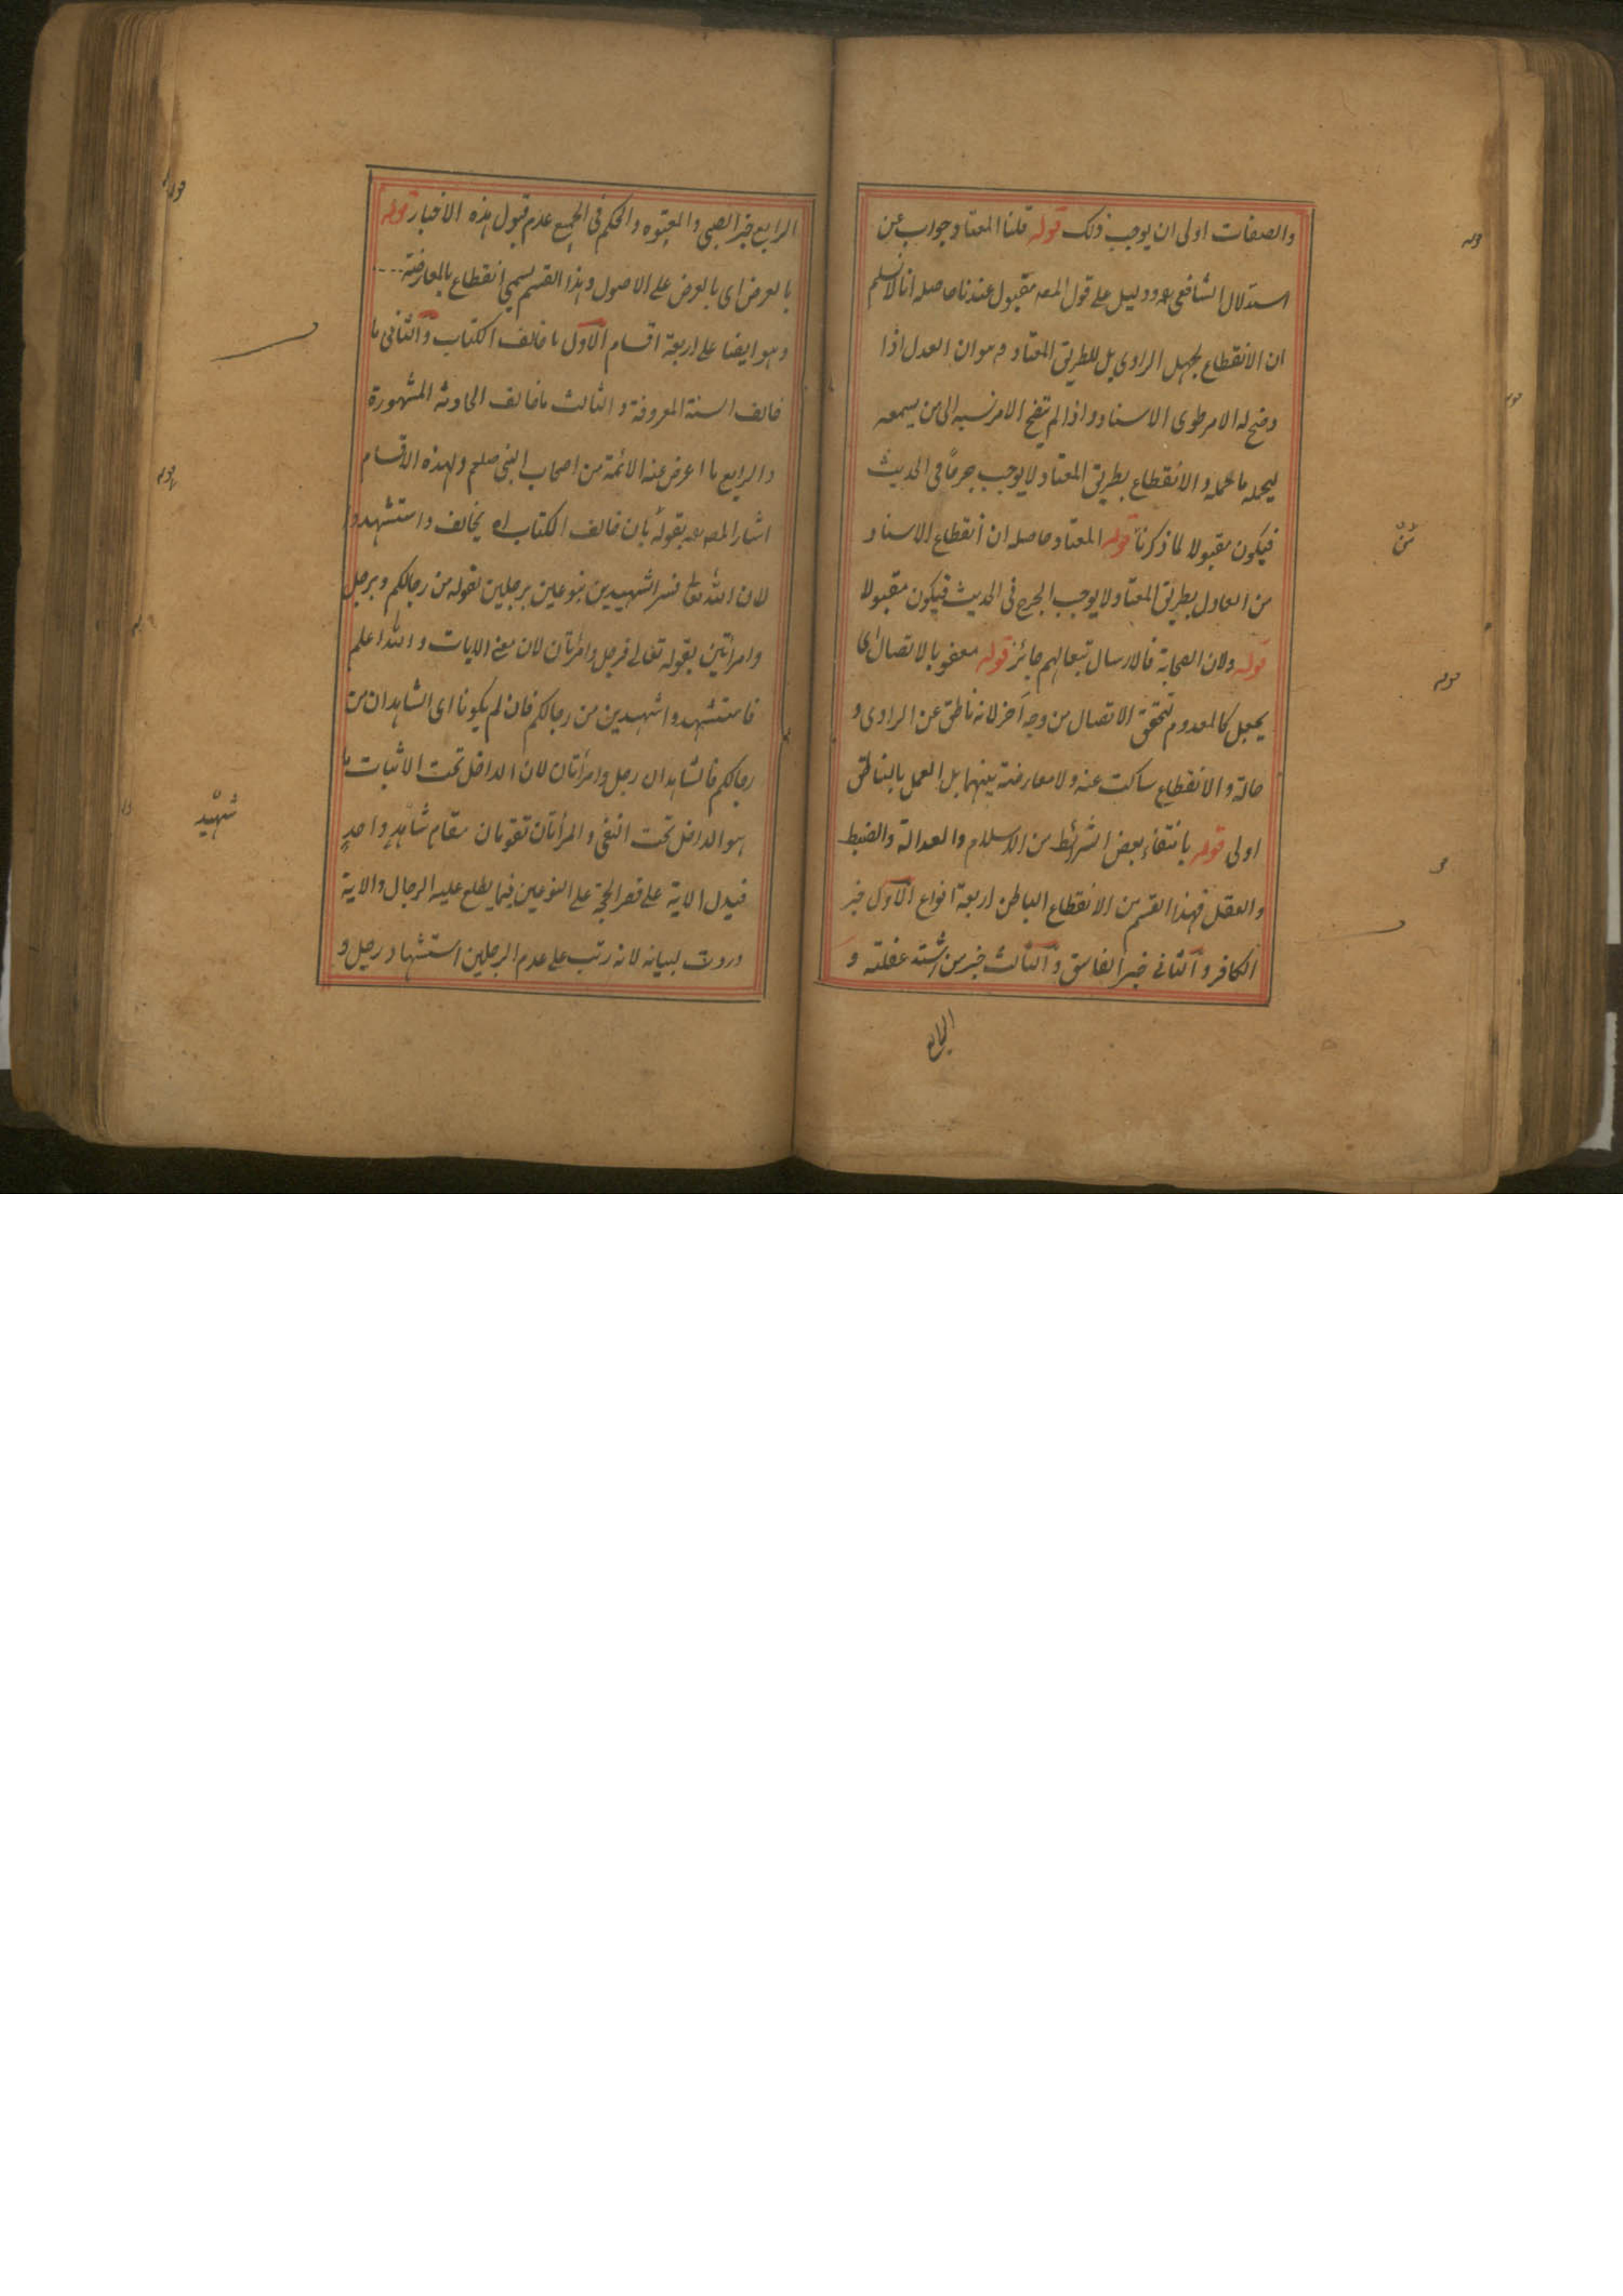 والصفات اولى ان يوجب ذلك قوله قلنا المعتاد جواب عن
استدلال الشافعى رح ودليل على قول المصـ مقبول عندنا حاصله انا لا نسلم
ان الانقطاع بجهل الراوى بل للطريق المعتاد وهو ان العدل اذا
وضح له الامر طوى الاسناد واذا لم يتضح الامر نسبه الى من يسمعه
ليحمله ما تحمله والانقطاع بطريق المعتاد لا يوجب جرحًا فى الحديث
فيكون مقبولا لما ذكرنا قوله المعتاد حاصله ان انقطاع الاسناد
من العادل بطريق المعتاد لا يوجب الجرح فى الحديث فيكون مقبولا
قوله ولان الصحابة فالارسال تبعا لهم جائز قوله معفو بالاتصال اى
يجعل كالمعدوم لتحقق الاتصال من وجه آخر لانه ناطق عن الراوى و
حاله والانقطاع ساكت عنه ولا معارضة بينهما بل العمل بالناطق
اولى قوله بانتفاء بعض الشرائط من الاسلام والعدالة والضبط
والعقل فهذا القسم من الانقطاع الباطن اربعة انواع الاول خبر
الكافر والثانى خبر الفاسق والثالث خبر من اشتد غفلته و
الرابع
الرابع خبر الصبى والمعتوه والحكم فى الجميع عدم قبول هذه الاخبار قوله
بالعرض اى بالعرض على الاصول وهذا القسم يسمى انقطاع بالمعارضة
وهو ايضا على اربعة اقسام الاول ما خالف الكتاب والثانى ما
خالف السنة المعروفة والثالث ما خالف الحادثة المشهورة
والرابع ما اعرض عنه الائمة من اصحاب النبى صلعم ولهذه الاقسام
اشار المصـ رح بقوله بان خالف الكتاب اه يخالف واستشهدوا
لان الله تعالى فسر الشهيدين بنوعين برجلين بقوله من رجالكم وبرجل
وامرأتين بقوله تعالى فرجل وامرأتان لان معنى الايات والله اعلم
فاستشهدوا شهيدين من رجالكم فان لم يكونا اى الشاهدان من
رجالكم فالشاهدان رجل وامرأتان لان الداخل تحت الاثبات ما
هو الداخل تحت النفى والمرأتان تقومان مقام شاهدٍ واحدٍ
فيدل الاية على قصر الحجة على النوعين فيما يطلع عليه الرجال والاية
وردت لبيانه لانه رتب على عدم الرجلين استشهاد رجل و
شهيد